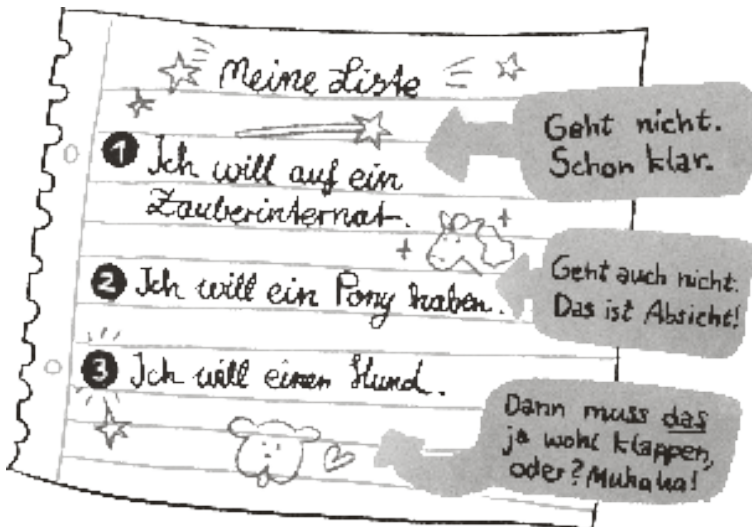 Meine Liste
1 Ich will auf ein
Zauberinternat.
Geht nicht.
Schon klar.
2 Ich will ein Pony haben.
Geht auch nicht.
Das ist Absicht!
3 Ich will einen Hund.
Dann muss das
ja wohl klappen,
oder? Muhaha!